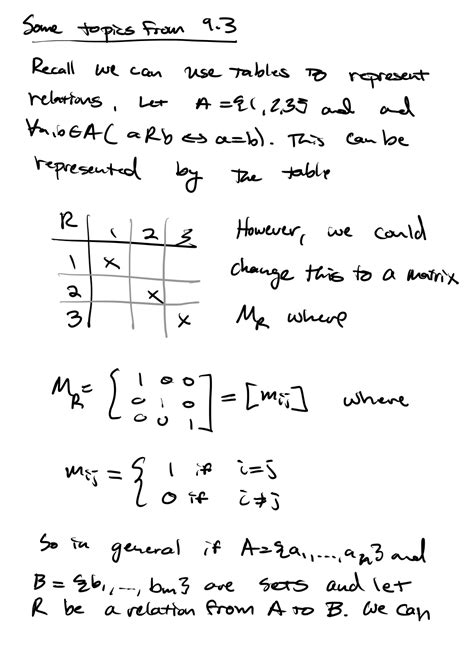 Some topics from 9.3
Recall we can use tables to represent
relations. Let A = {1,2,3} and and
∀a,b∈A( aRb ⇔ a=b). This can be
represented by the table
R | 1 | 2 | 3
1 | x
2 | | x
3 | | | x
However, we could
change this to a matrix
M_R where
M_R = [ 1 0 0
0 1 0
0 0 1 ] = [m_ij] where
m_ij = { 1 if i=j
0 if i≠j
So in general if A={a_1,...,a_n} and
B = {b_1,...,b_m} are sets and let
R be a relation from A to B. We can